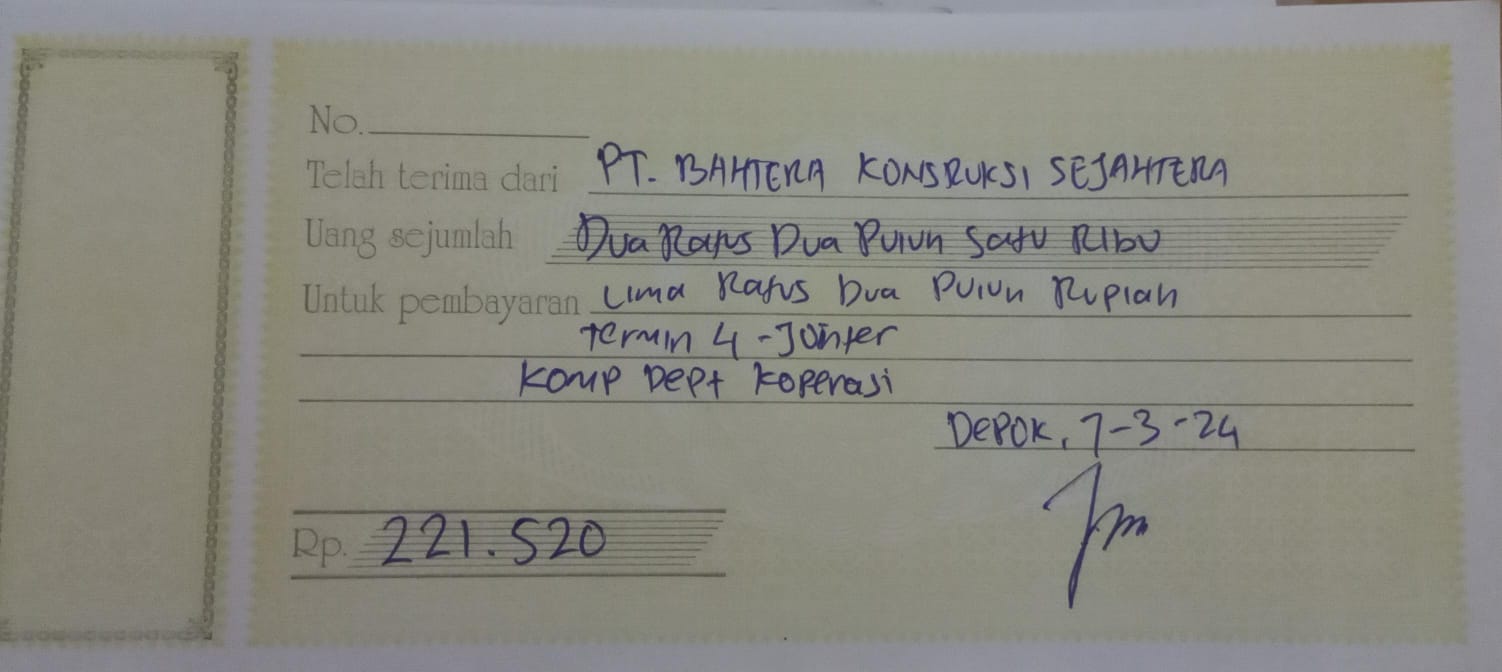 No.
Telah terima dari PT. BAHTERA KONSRUKSI SEJAHTERA
Uang sejumlah Dua Ratus Dua Puluh Satu Ribu
Untuk pembayaran Lima Ratus Dua Puluh Rupiah
Termin 4 -
Komp Dept Koperasi
Depok, 7-3-24
Rp. 221.520